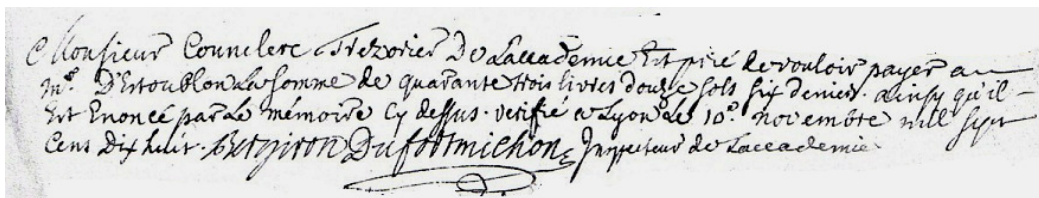 Monsieur Counclerc Trezorier De Laccademie Est prié de vouloir payer a
Mr. D'Estoublon La somme de quarante trois livres douze sols six deniers. ainsy qu'il
Est Enoncé par Le mémoire Cy dessus. verifié a Lyon Le 10e. novembre mil sept
Cens Dix huit. Bergiron Dufort michon Inspecteur de Laccademie